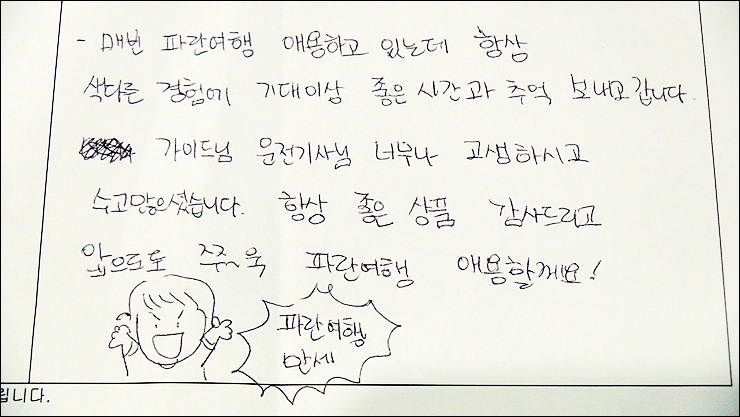 - 매번 파란여행 애용하고 있는데 항상
색다른 경험에 기대이상 좋은 시간과 추억 보내고 갑니다.
가이드님 운전기사님 너무나 고생하시고
수고많으셨습니다. 항상 좋은 상품 감사드리고
앞으로도 주~욱 파란여행 애용할께요!
파란여행
만세
립니다.